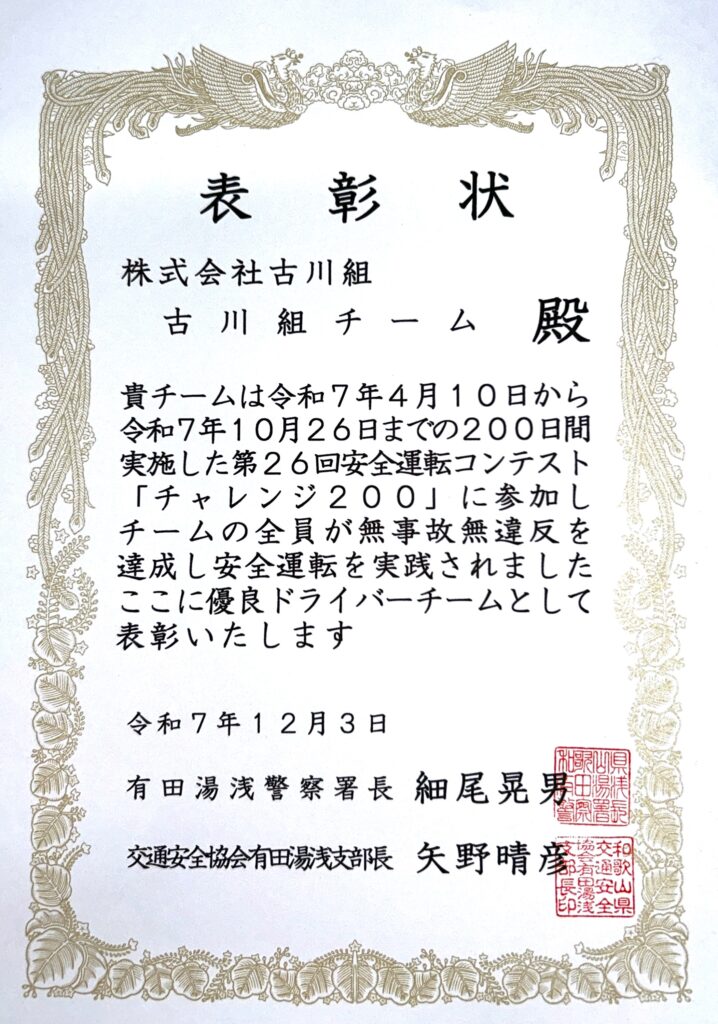 表彰状
株式会社古川組
古川組チーム 殿
貴チームは令和７年４月１０日から
令和７年１０月２６日までの２００日間
実施した第２６回安全運転コンテスト
「チャレンジ２００」に参加し
チームの全員が無事故無違反を
達成し安全運転を実践されました
ここに優良ドライバーチームとして
表彰いたします
令和７年１２月３日
有田湯浅警察署長 細尾晃男
交通安全協会有田湯浅支部長 矢野晴彦
和歌山県
交通安全
協会有田湯浅
支部長印